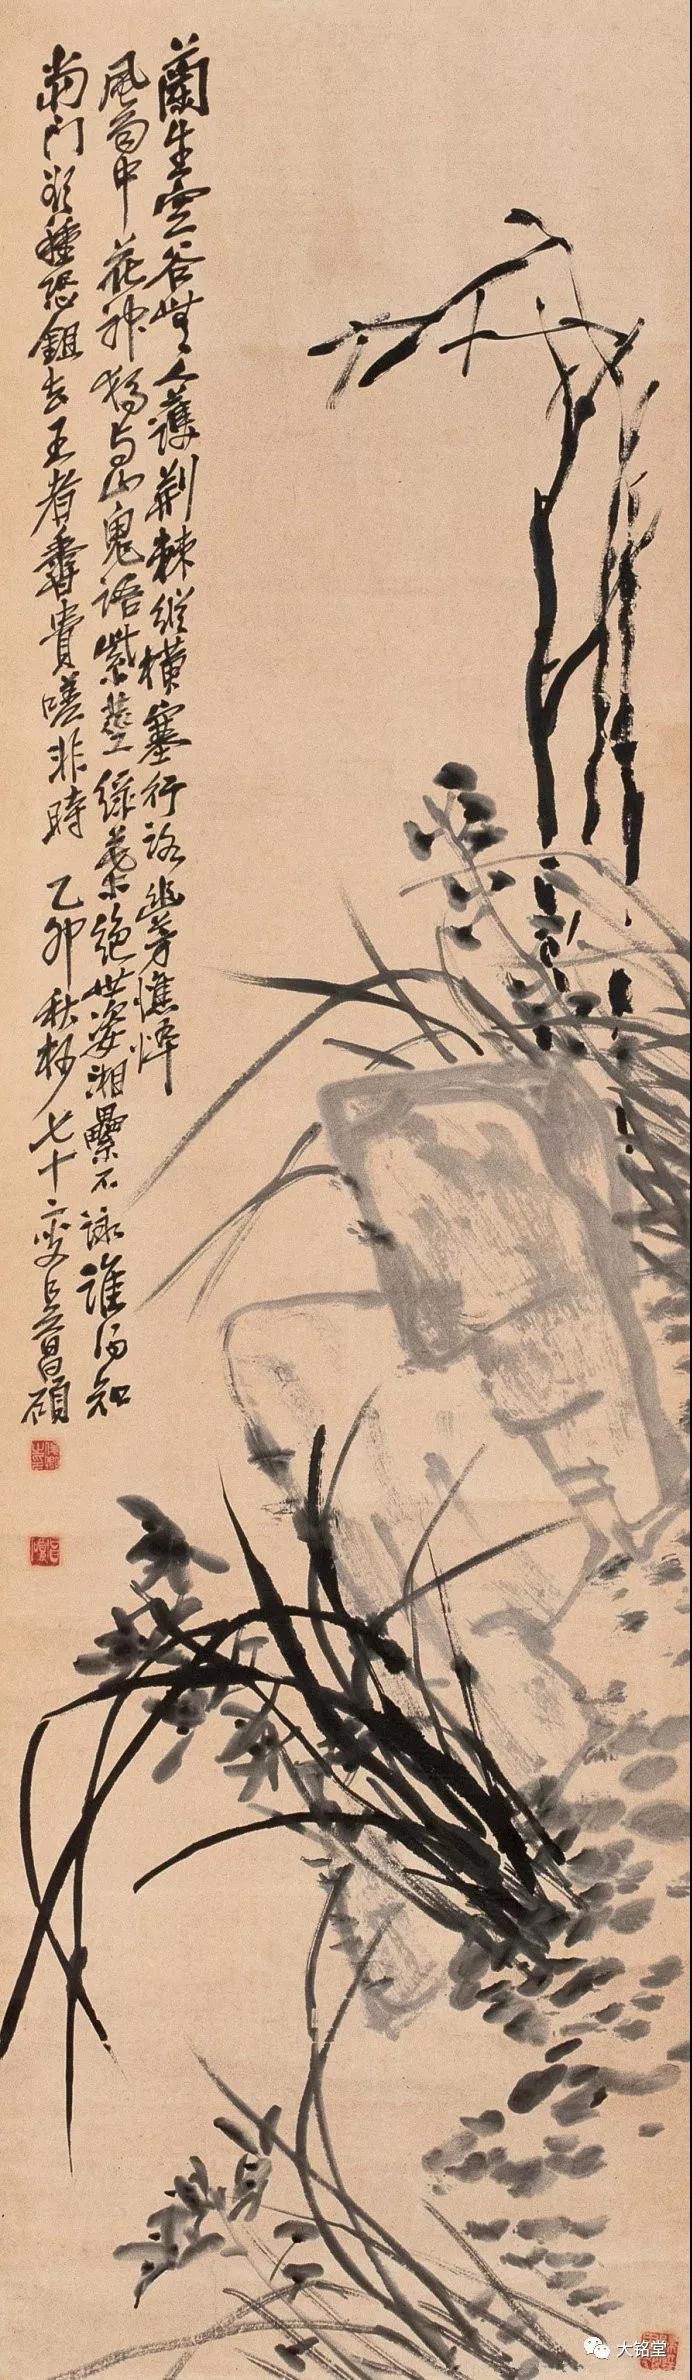 蘭生空谷無人護荊棘縱橫塞行路幽芳憔悴
風雨中花神猶与山鬼語紫莖綠葉絕世姿湘纍不詠誰得知
當門欲種恐鉏去王者香貴嗟非時 乙卯秋杪七十二叟吳昌碩
俊卿之印
大铭堂